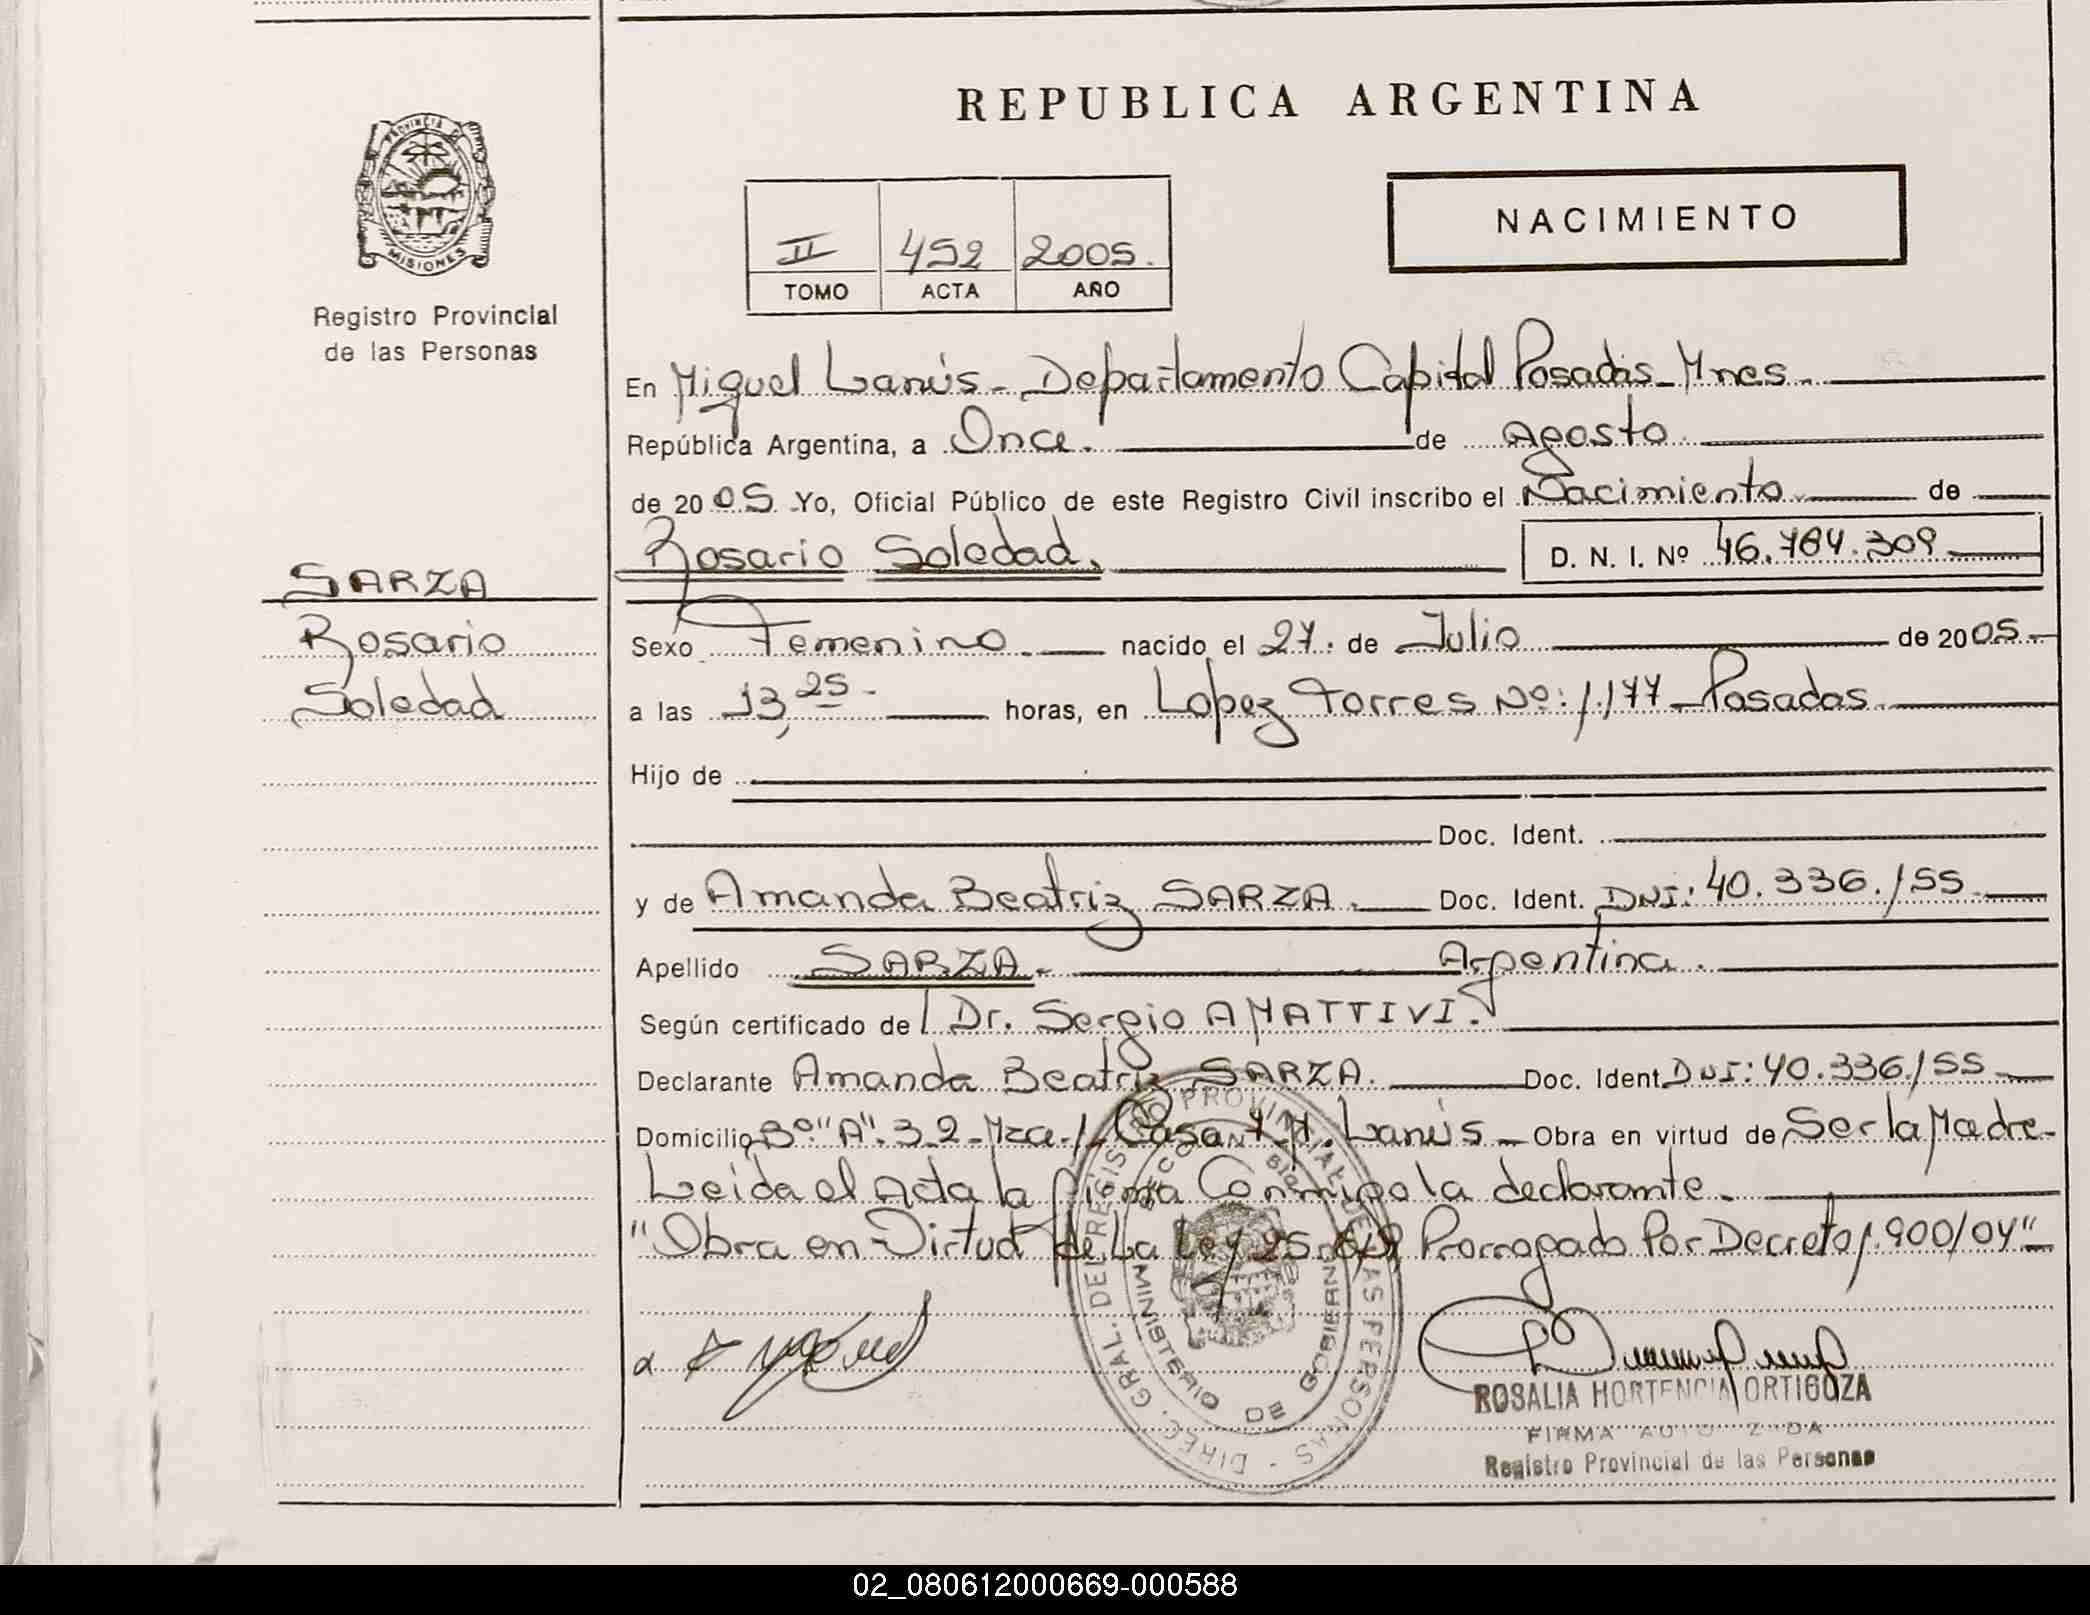 REPUBLICA ARGENTINA
PROVINCIA DE
MISIONES
Registro Provincial
de las Personas
NACIMIENTO
II 452 2005.
TOMO ACTA AÑO
En Miguel Lanús - Departamento Capital Posadas - Mnes.
República Argentina, a Once. de Agosto
de 2005. Yo, Oficial Público de este Registro Civil inscribo el Nacimiento de
Rosario Soledad. D. N. I. Nº 46.784.309
SARZA
Rosario
Soledad
Sexo Femenino. nacido el 27. de Julio de 2005.
a las 13,25 - horas, en Lopez Torres Nº: 1.177 - Posadas.
Hijo de
Doc. Ident.
y de Amanda Beatriz SARZA. Doc. Ident. DNI: 40.336.155.
Apellido SARZA. Argentina.
Según certificado de Dr. Sergio AMATTIVI.
Declarante Amanda Beatriz SARZA. Doc. Ident. DNI: 40.336.155
Domicilio Bº "A". 3.2 - Mza. 1 - Casa 7 M. Lanús - Obra en virtud de Ser la Madre -
Leida el Acta la firma Conmigo la declarante.
"Obra en Virtud de La Ley 25.819 Prorrogado Por Decreto 1.900/04"
DIREC. GRAL. DEL REGISTRO PROVINCIAL DE LAS PERSONAS
MINISTERIO DE GOBIERNO
ROSALIA HORTENCIA ORTIGOZA
FIRMA AUTORIZADA
Registro Provincial de las Personas
02_080612000669-000588